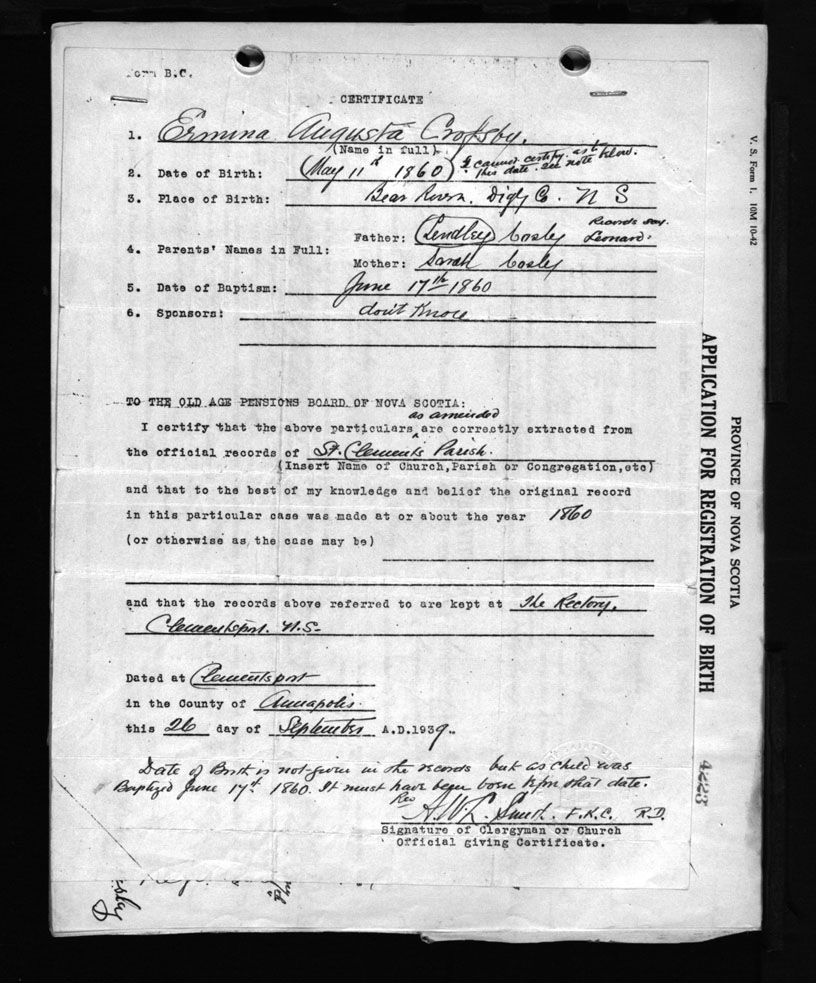 Form B.C.
CERTIFICATE
1. Ermina Augusta Crossby.
(Name in full)
2. Date of Birth: (May 11th 1860) I cannot certify as to this date. see note below.
3. Place of Birth: Bear River. Digby Co. N S
4. Parents' Names in Full:
Father: (Lendley) Cosby Records say. Leonard.
Mother: Sarah Cosby
5. Date of Baptism: June 17th 1860
6. Sponsors: don't Know
TO THE OLD AGE PENSIONS BOARD OF NOVA SCOTIA:
as amended
I certify that the above particulars ^ are correctly extracted from
the official records of St. Clements Parish.
(Insert Name of Church, Parish or Congregation, etc)
and that to the best of my knowledge and belief the original record
in this particular case was made at or about the year 1860
(or otherwise as the case may be)
and that the records above referred to are kept at The Rectory,
Clementsport. N.S.
Dated at Clementsport
in the County of Annapolis.
this 26 day of September A.D.1939.
Date of Birth is not given in the records but as child was
Baptized June 17th 1860. It must have been born before that date.
Rev A.W.L. Smith. F.K.C. R.D.
Signature of Clergyman or Church
Official giving Certificate.
V. S. Form 1. 10M 10-42
PROVINCE OF NOVA SCOTIA
APPLICATION FOR REGISTRATION OF BIRTH
4223